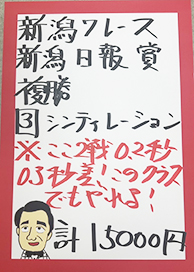 新潟7レース
新潟日報賞
複勝
3 シンティレーション
※ ここ2戦 0.2秒
0.3秒差!このクラス
でもやれる!
計 15000円